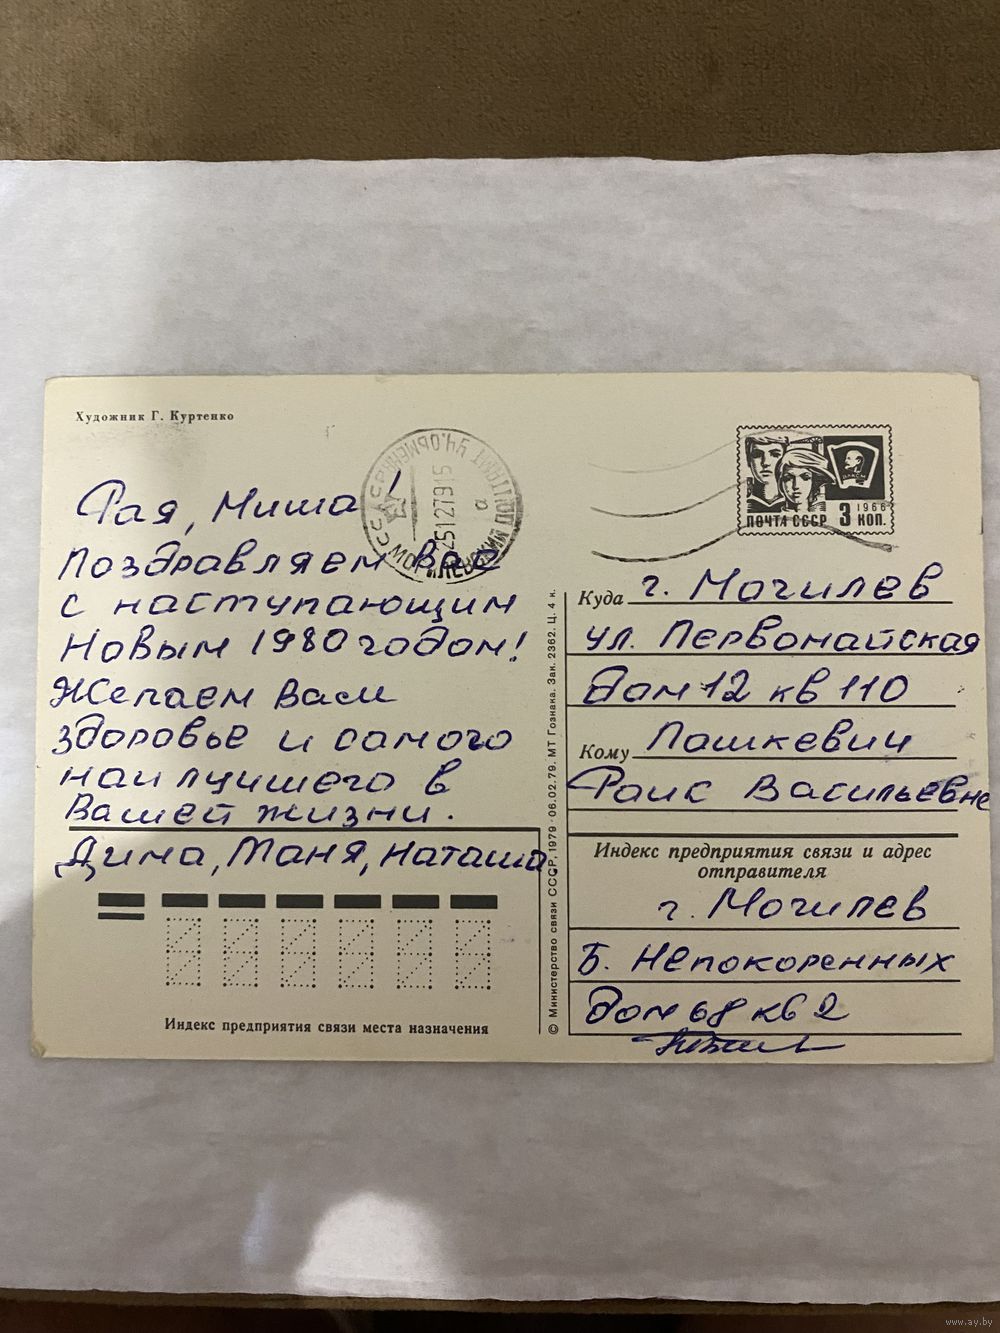 Художник Г. Куртенко
ПОЧТА СССР 3 КОП.
1966
ВЛКСМ
СССР
25127915
а
Рая, Миша!
Поздравляем Вас
с наступающим
Новым 1980 годом!
Желаем Вам
здоровье и самого
наилучшего в
Вашей жизни.
Дима, Маня, Наташа
Индекс предприятия связи места назначения
© Министерство связи СССР, 1979 · 06.02.79. МТ Гознака. Зак. 2362. Ц. 4 к.
Куда г. Могилев
ул. Первомайская
дом 12 кв 110
Кому Пашкевич
Раис Васильевне
Индекс предприятия связи и адрес
отправителя
г. Могилев
Б. Непокоренных
дом 68 кв 2
www.ay.by